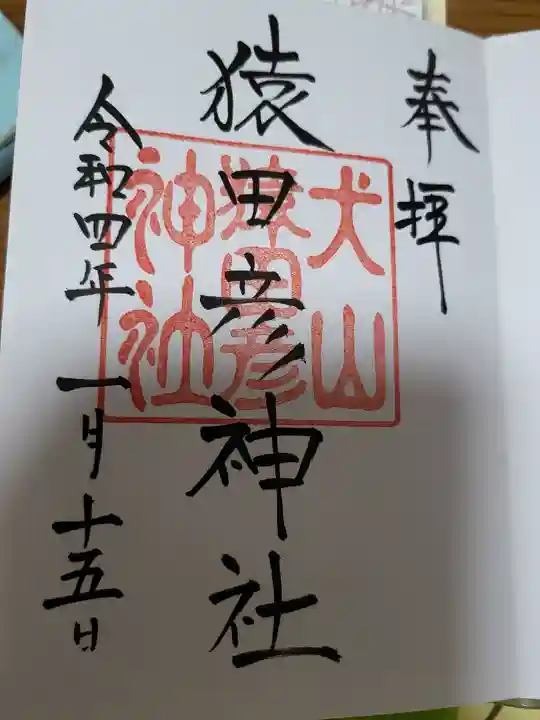 奉拝
猿田彦神社
令和四年一月十五日
犬山
猿田彦
神社